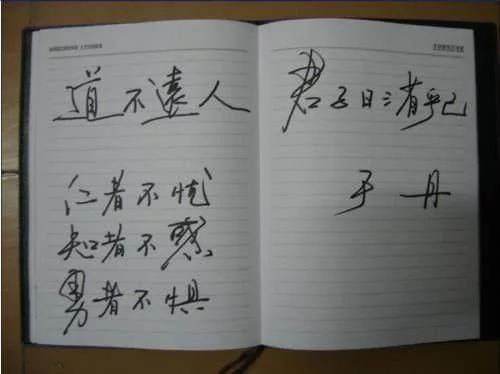 道不遠人
仁者不忧
知者不惑
勇者不惧
君子日三省乎己
于丹